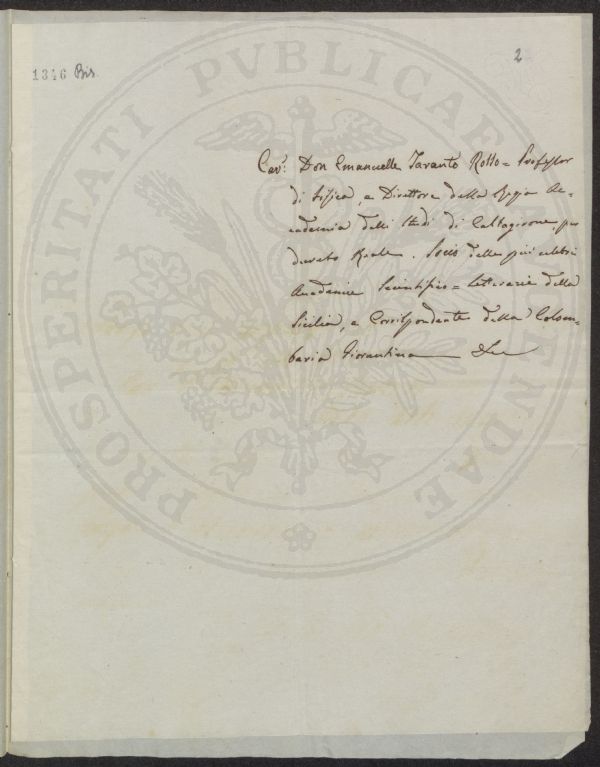 2
1346 Bis.
PROSPERITATI PVBLICAE AVGENDAE
Cav.r Don Emanuelle Taranto Rosso = Professor
di Fisica, e Direttore della Regia Ac=
cademia delli Studi di Caltagirone per
decreto Reale. Socio delle più celebri
Accademie Scientifico = Letterarie della
Sicilia, e Corrispondente della Colom=
baria Fiorentina